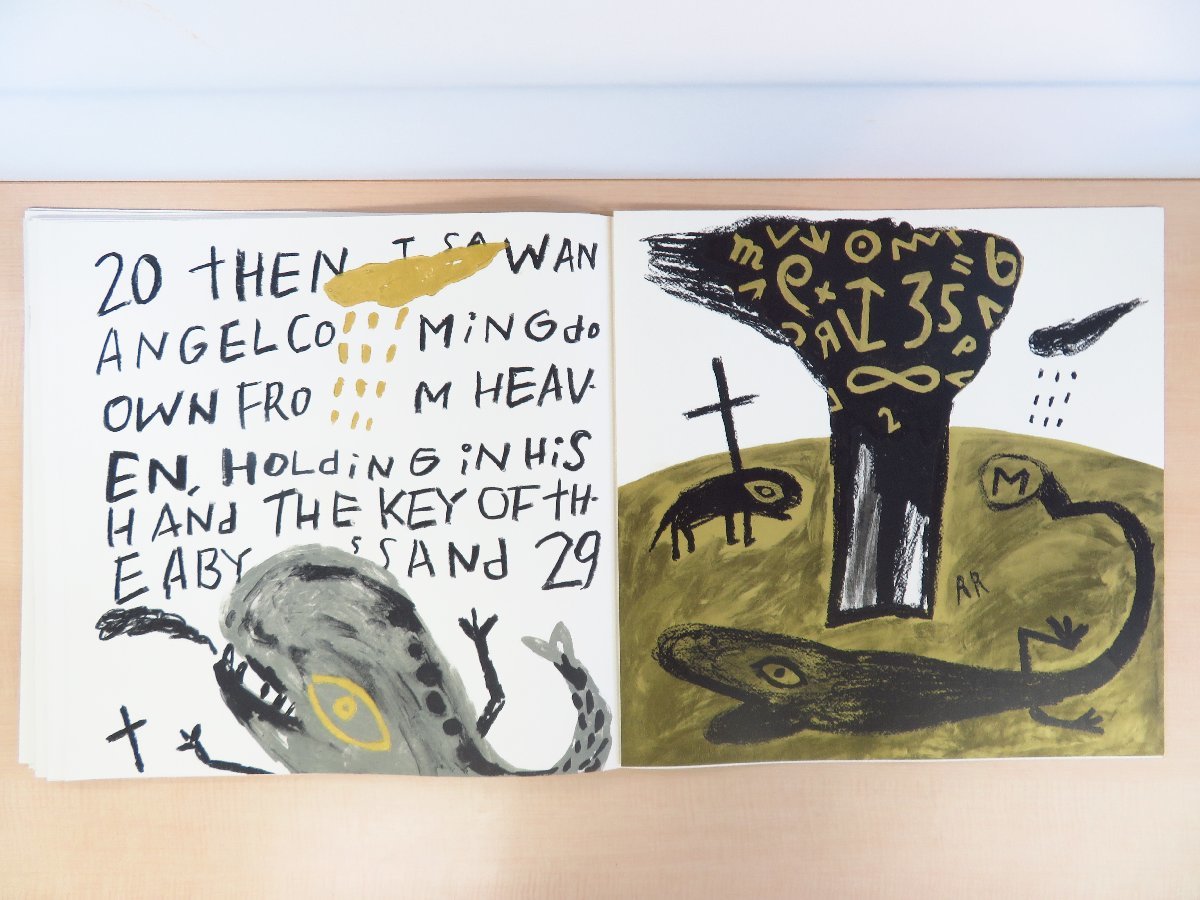 20 THEN I SAW AN
ANGEL COMiNG do
OWN FROM HEAV-
EN, HOLdiNG iN HiS
HANd THE KEY OF tH-
E ABYSS ANd 29
m
6
35
∞
P
2
M
AR